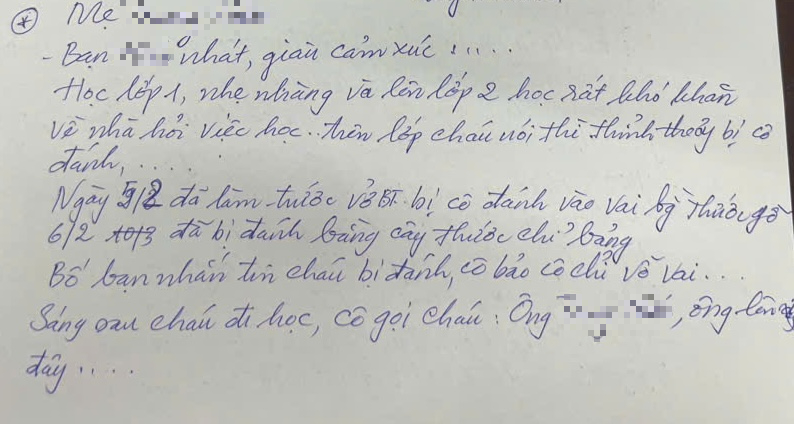 * Mẹ
- Bạn nhát, giàu cảm xúc .....
Học lớp 1, nhẹ nhàng và lên lớp 2 học rất khó khăn
Về nhà hỏi việc học.. trên lớp cháu nói thì thỉnh thoảng bị cô
đánh, ....
Ngày 5/2 đã làm trước vở BT. bị cô đánh vào vai bg thước gỗ
6/2 10/3 đã bị đánh bằng cây thước chỉ bảng
Bố bạn nhắn tin cháu bị đánh, cô bảo cô chỉ vỗ vai...
Sáng sau cháu đi học, cô gọi cháu: Ông , ông lên
đây .....